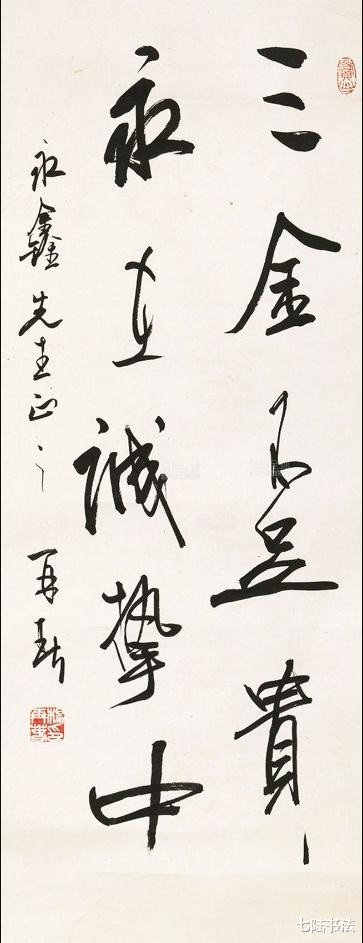 三金不足貴、
永在誠摯中
永鑫先生正之
再春
七陆书法